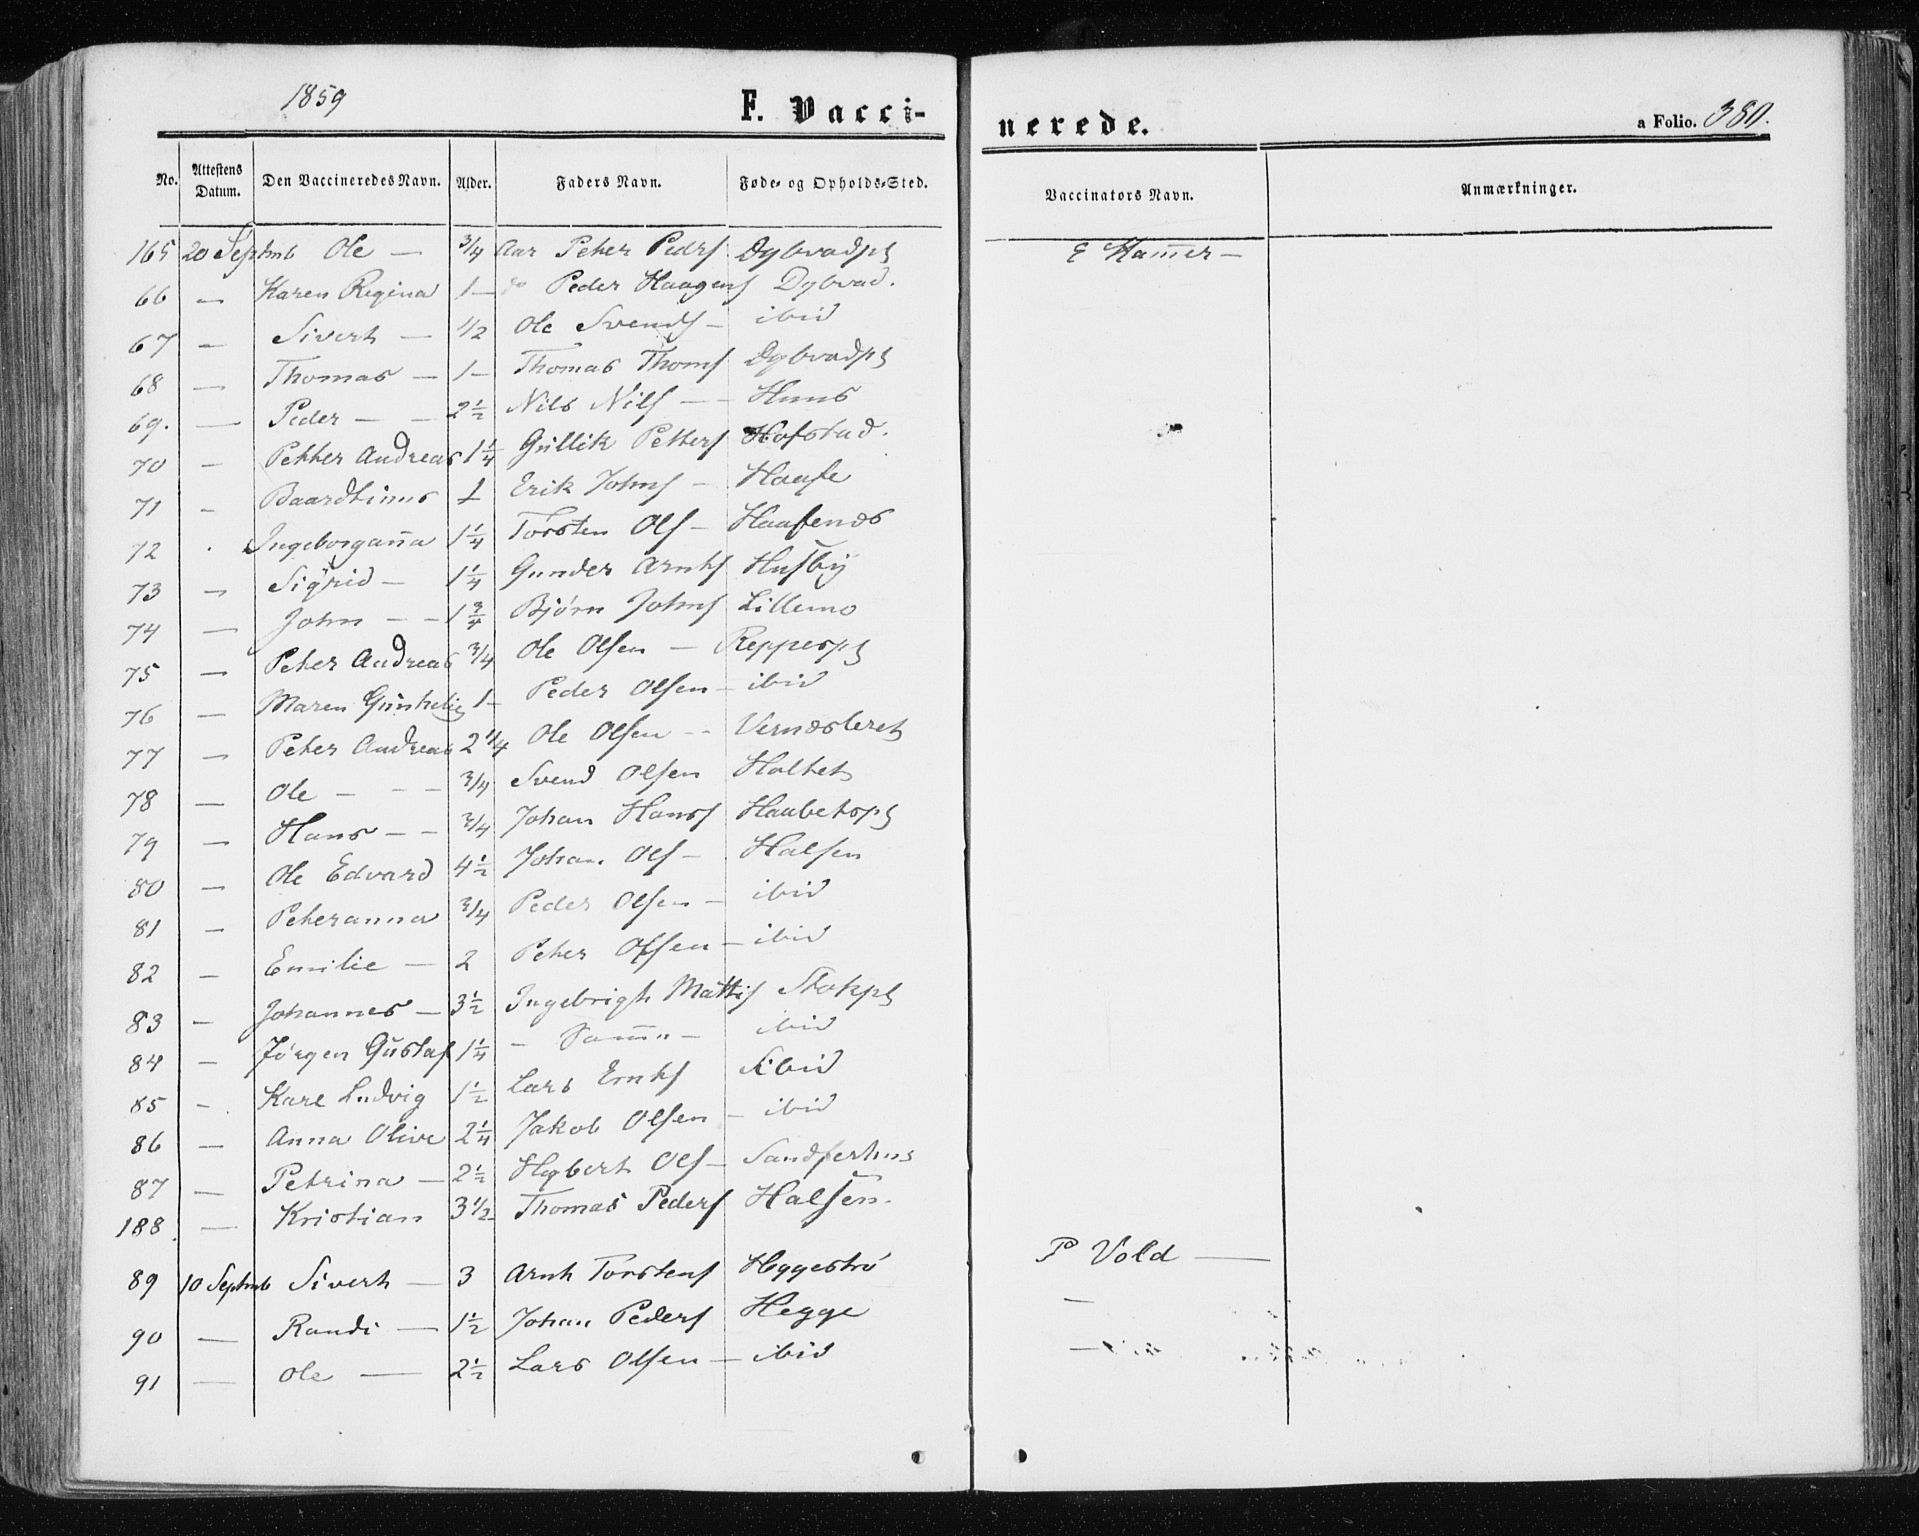 1859
F. Vacci-
nerede.
a Folio. 380.
No. Attestens Datum. Den Vaccineredes Navn. Alder. Faders Navn. Føde- og Opholds-Sted. Vaccinators Navn. Anmærkninger.
165 20 Septmb Ole — 3/4 Aar Peter Peders Dybvadpl E Ham̄er —
66 — Karen Regina 1 — do Peder Haagens Dybvad.
67 — Sivert — 1/2 Ole Svends — ibid
68 — Thomas — 1 — Thomas Thoms Dybvadpl
69. — Peder — — 2½ Nils Nils — — Huus
70 — Petter Andreas 1¼ Gullik Petters Hofstad.
71 — Baardtinus 1 Erik Johns — Haase
72 . Ingeborgan̄a 1¼ Torsten Ols — Haafenes
73 — Sigrid — 1¼ Gunder Arnts Husby
74 — John — — 1¾ Bjørn Johns Lillemo
75 — Peter Andreas 3/4 Ole Olsen — Reppespl
76 — Maren 1 — Peder Olsen — ibid
77 — Peter Andreas 2 1/4 Ole Olsen — Vernesleret
78 — Ole — — — 3/4 Svend Olsen Holtet
79 — Hans — — 3/4 Johan Hans Haabetspl
80 — Ole Edvard 4½ Johan Ols — Halsen
81 — Peteranna 3/4 Peder Olsen — ibid
82 — Emilie — 2 Peter Olsen — ibid
83 — Johannes — 3½ Ingebrigt Mattis Stokpl
84 — Jørgen Gustaf 1¼ — Sam̄e — ibid
85 — Karl Ludvig 1½ Lars Ernts ibid
86 — Anna Olive 2¼ Jakob Olsen — ibid
87 — Petrina — 2½ Hybert Ols — Sandferhus
188 — Kristian 3 1/2 Thomas Peders Halsen.
89 10 Septmb Sivert — 3 Arnt Torstens Heggestrø P Vold —
90 — Randi — 1½ Johan Peders Hegge —
91 — Ole — 2½ Lars Olsen — ibid —